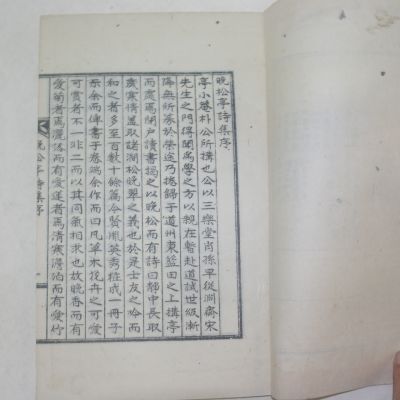 晚松亭詩集序
亭小巷朴公所構也公以三樂堂肖孫早從澗齋宋
先生之門得聞爲學之方以親在暫赴道試世級漸
降無所求於榮途乃捲歸于道州東藍田之上構亭
而處焉閉戶讀書揭之以晚松而有詩曰鬱申長取
歲寒情蓋取諸澗松晚翠之義也於是士友之吟而
和之者多至百數十餘篇今賢胤英秀粧成一冊子
示余而俾書于卷端余作而曰凡草木花卉之可愛
可賞者不一非二而以其同氣相求也故晚香而有
愛菊者焉灑落而有愛蓮者焉清寒澹泊而有愛竹
晚松亭詩集序